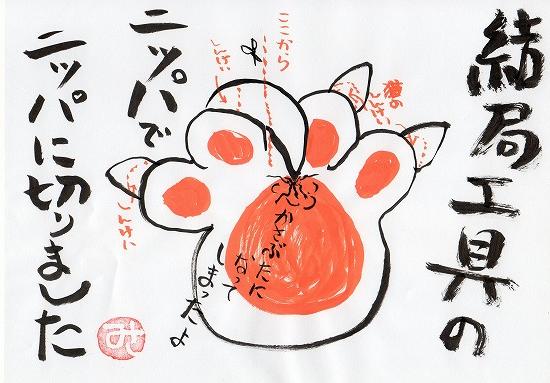 結局工具の
ニッパで
ニッパに切りました
猫の
しんけい
ここから
しんけい
しんけい
かさぶ
たに
なって
しまったよ
み